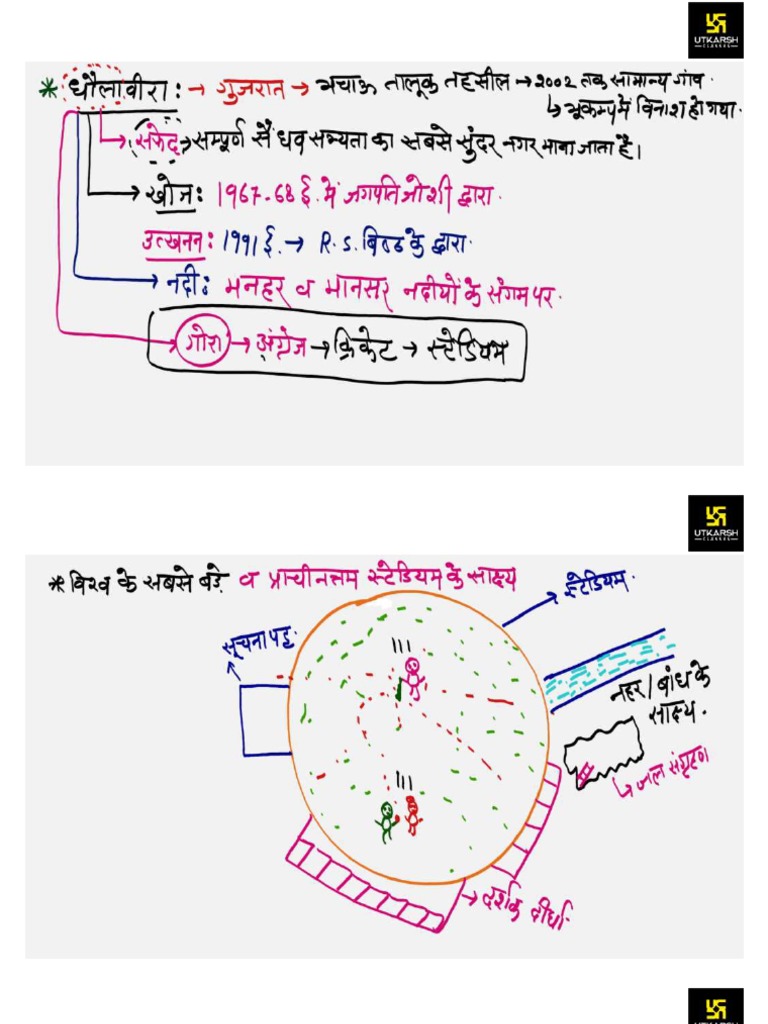 UTKARSH
CLASSES
* धौलावीरा: → गुजरात → भचाऊ तालूक तहसील → 2002 तक सामान्य गांव.
↳ भूकम्प में विनाश हो गया.
→ सफेद → सम्पूर्ण सैंधव सभ्यता का सबसे सुंदर नगर माना जाता है।
→ खोज: 1967-68 ई. में जगपति जोशी द्वारा.
उत्खनन: 1991 ई. → R.S. बिष्ट के द्वारा.
→ नदी: मनहर व मानसर नदीयों के संगम पर.
→ गोरा → अंग्रेज → क्रिकेट → स्टेडियम
UTKARSH
CLASSES
* विश्व के सबसे बड़े व प्राचीनत्तम स्टेडियम के साक्ष्य
→ स्टेडियम.
सूचना पट्ट.
नहर / बांध के
साक्ष्य.
↳ जल संग्रहण
→ दर्शक दीर्घा
UTKARSH